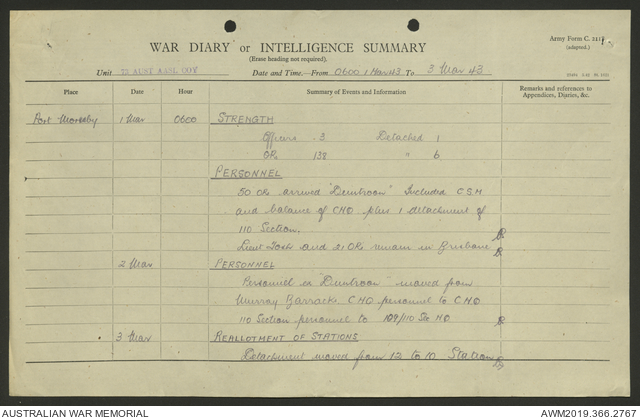 Army Form C. 2118
(adapted.)
WAR DIARY or INTELLIGENCE SUMMARY
(Erase heading not required).
Unit 73 AUST COY Date and Time.—From 0600 1 Mar 43 To 3 Mar 43
Place Date Hour Summary of Events and Information Remarks and references to
Appendices, Diaries, &c.
Port Moresby 1 Mar 0600 STRENGTH
Officers 3 Detached 1
ORs 138 " 6
PERSONNEL
50 ORs arrived "Duntroon" Included C.S.M
and balance of CHQ plus 1 detachment of
110 Section.
Lieut Tosh and 21 ORs remain in Brisbane
2 Mar PERSONNEL
Personnel on "Duntroon" moved from
Murray Barracks. CHQ personnel to CHQ
110 Section personnel to 109/110 Sec HQ
3 Mar REALLOTMENT OF STATIONS
Detachment moved from 12 to 10 Station
AUSTRALIAN WAR MEMORIAL AWM2019.366.2767